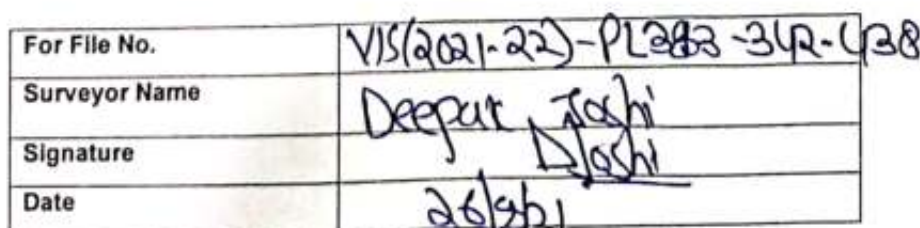 For File No. VIS(2021-22)-PL383-342-438
Surveyor Name Deepak Joshi
Signature DJoshi
Date 26/9/21